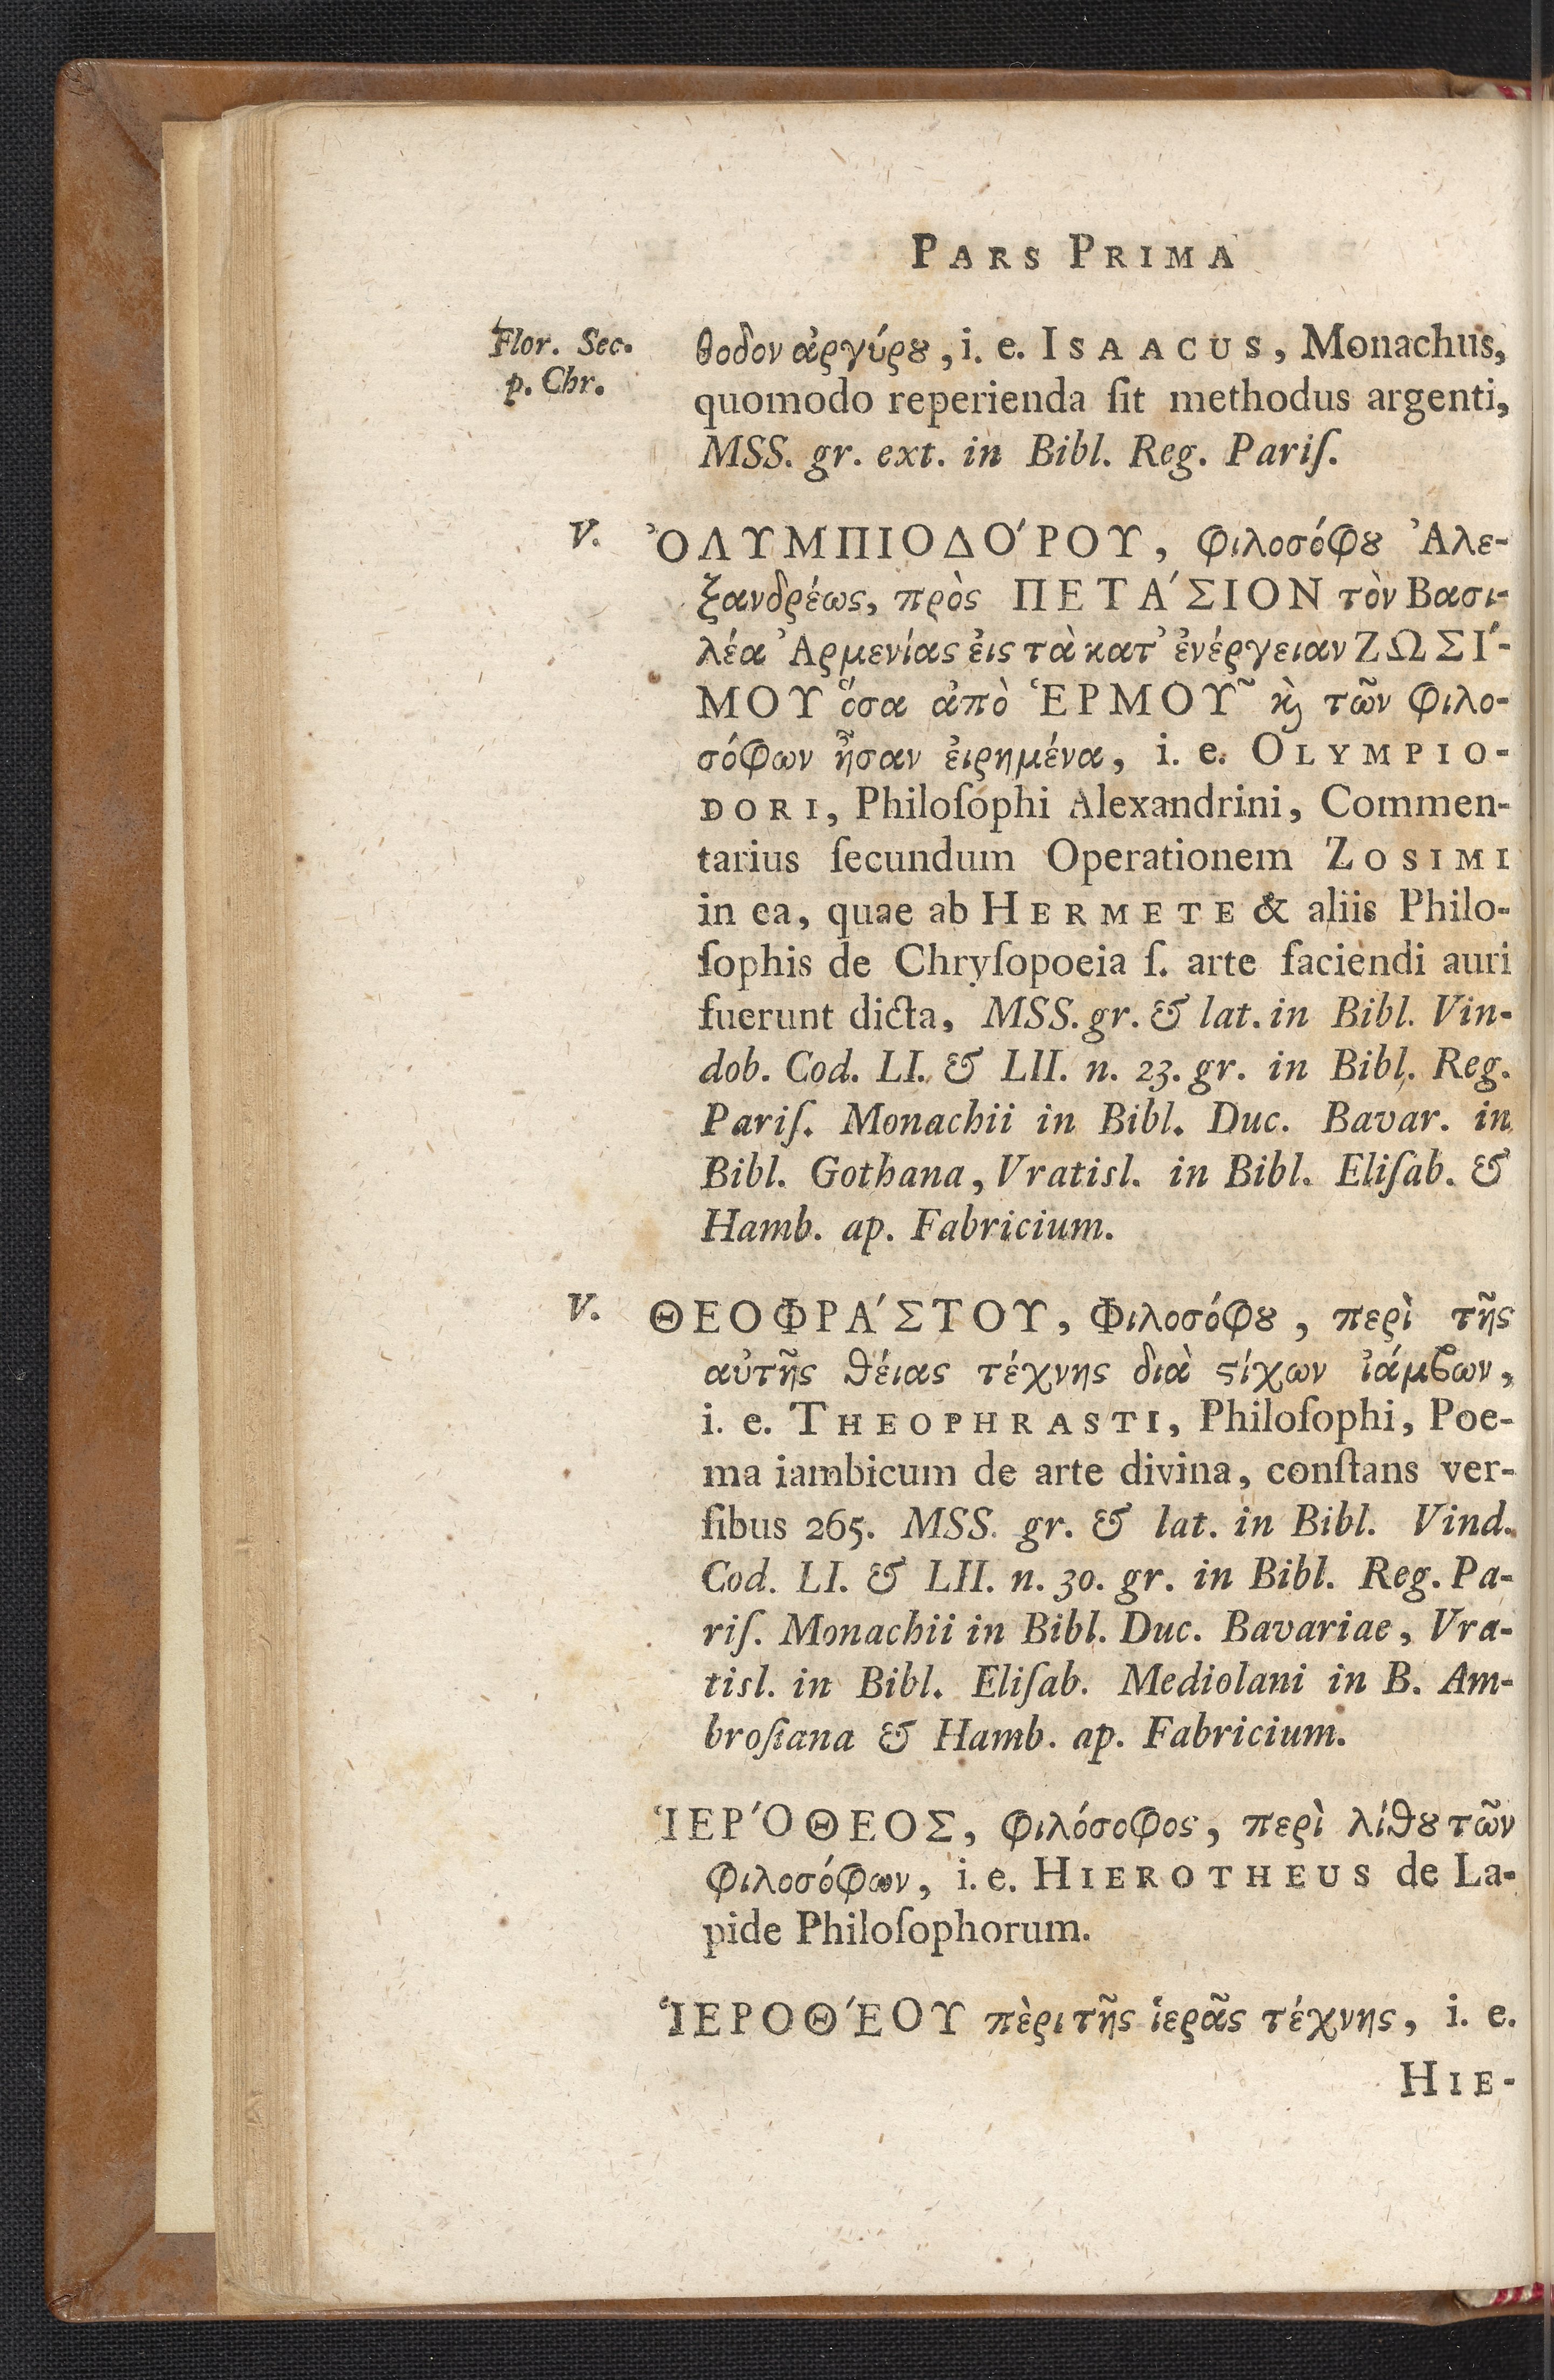 PARS PRIMA
Flor. Sec.
p. Chr.
θοδον ἀργύρȣ, i. e. ISAACUS, Monachus,
quomodo reperienda ſit methodus argenti,
MSS. gr. ext. in Bibl. Reg. Pariſ.
V. ὈΛΥΜΠΙΟΔΌΡΟΥ, φιλοσόφȣ Ἀλε-
ξανδρέως, πρὸς ΠΕΤΆΣΙΟΝ τὸν Βασι-
λέα Ἀρμενίας ἐις τὰ κατ᾽ ἐνέργειαν ΖΩΣΊ-
ΜΟΥ ὅσα ἀπὸ ἙΡΜΟΥ͂ ϗ̀ τῶν φιλο-
σόφων ἦσαν ἐιρημένα, i. e. OLYMPIO-
DORI, Philoſophi Alexandrini, Commen-
tarius ſecundum Operationem ZOSIMI
in ea, quae ab HERMETE & aliis Philo-
ſophis de Chryſopoeia ſ. arte faciendi auri
fuerunt dicta, MSS. gr. & lat. in Bibl. Vin-
dob. Cod. LI. & LII. n. 23. gr. in Bibl. Reg.
Pariſ. Monachii in Bibl. Duc. Bavar. in
Bibl. Gothana, Vratisl. in Bibl. Eliſab. &
Hamb. ap. Fabricium.
V. ΘΕΟΦΡΆΣΤΟΥ, Φιλοσόφȣ, περὶ τῆς
αὐτῆς θέιας τέχνης διὰ ϛίχων ἰάμβων,
i. e. THEOPHRASTI, Philoſophi, Poe-
ma iambicum de arte divina, conſtans ver-
ſibus 265. MSS. gr. & lat. in Bibl. Vind.
Cod. LI. & LII. n. 30. gr. in Bibl. Reg. Pa-
riſ. Monachii in Bibl. Duc. Bavariae, Vra-
tisl. in Bibl. Eliſab. Mediolani in B. Am-
broſiana & Hamb. ap. Fabricium.
ἹΕΡΌΘΕΟΣ, φιλόσοφος, περὶ λίθȣ τῶν
φιλοσόφων, i. e. HIEROTHEUS de La-
pide Philoſophorum.
ἹΕΡΟΘΈΟΥ πὲρι τῆς ἱερᾶς τέχνης, i. e.
HIE-